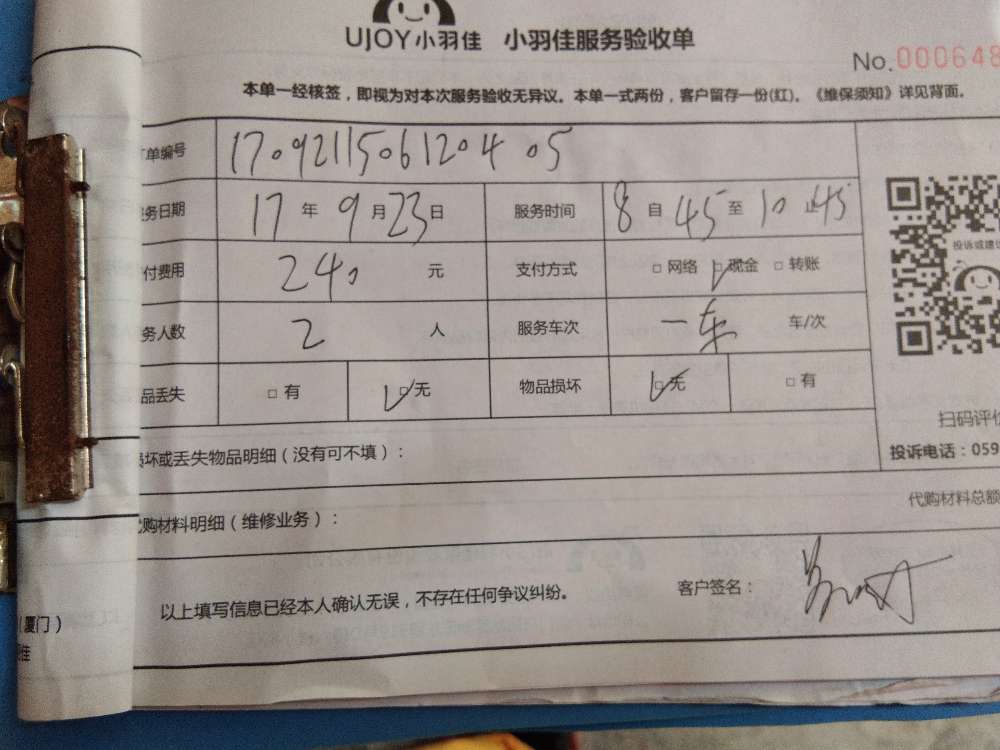 UJOY小羽佳 小羽佳服务验收单
No.000648
本单一经核签，即视为对本次服务验收无异议。本单一式两份，客户留存一份(红)。《维保须知》详见背面。
单编号 17092115061204 05
务日期 17 年 9 月 23 日 服务时间 8 自 45 至 10 止 45
付费用 240 元 支付方式 □ 网络 □ 现金 □ 转账
务人数 2 人 服务车次 一车 车/次
品丢失 □ 有 □ 无 物品损坏 □ 无 □ 有
投诉或建议
扫码评价
投诉电话：059
损坏或丢失物品明细（没有可不填）：
代购材料总额
购材料明细（维修业务）：
以上填写信息已经本人确认无误，不存在任何争议纠纷。 客户签名：
厦门）
佳